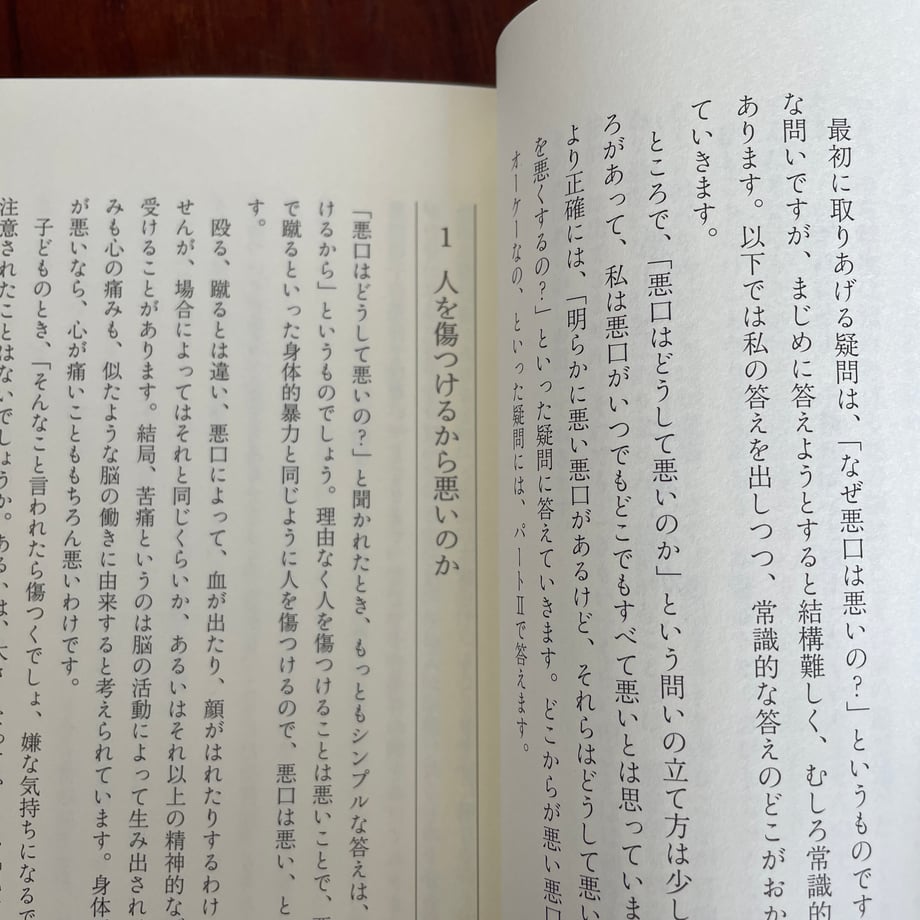 最初に取りあげる疑問は、「なぜ悪口は悪いの?」というものです
な問いですが、まじめに答えようとすると結構難しく、むしろ常識的
あります。以下では私の答えを出しつつ、常識的な答えのどこがおか
ていきます。
ところで、「悪口はどうして悪いのか」という問いの立て方は少し
ろがあって、私は悪口がいつでもどこでもすべて悪いとは思っていま
より正確には、「明らかに悪い悪口があるけど、それらはどうして悪い
を悪くするの?」といった疑問に答えていきます。どこからが悪い悪口
オーケーなの、といった疑問には、パートⅡで答えます。
1 人を傷つけるから悪いのか
「悪口はどうして悪いの?」と聞かれたとき、もっともシンプルな答えは、
けるから」というものでしょう。理由なく人を傷つけることは悪いことで、
で蹴るといった身体的暴力と同じように人を傷つけるので、悪口は悪い、と
す。
殴る、蹴るとは違い、悪口によって、血が出たり、顔がはれたりするわけ
せんが、場合によってはそれと同じくらいか、あるいはそれ以上の精神的な
受けることがあります。結局、苦痛というのは脳の活動によって生み出され
みも心の痛みも、似たような脳の働きに由来すると考えられています。身体
が悪いなら、心が痛いことももちろん悪いわけです。
子どものとき、「そんなこと言われたら傷つくでしょ、嫌な気持ちになるで
注意されたことはないでしょうか。あるいは、